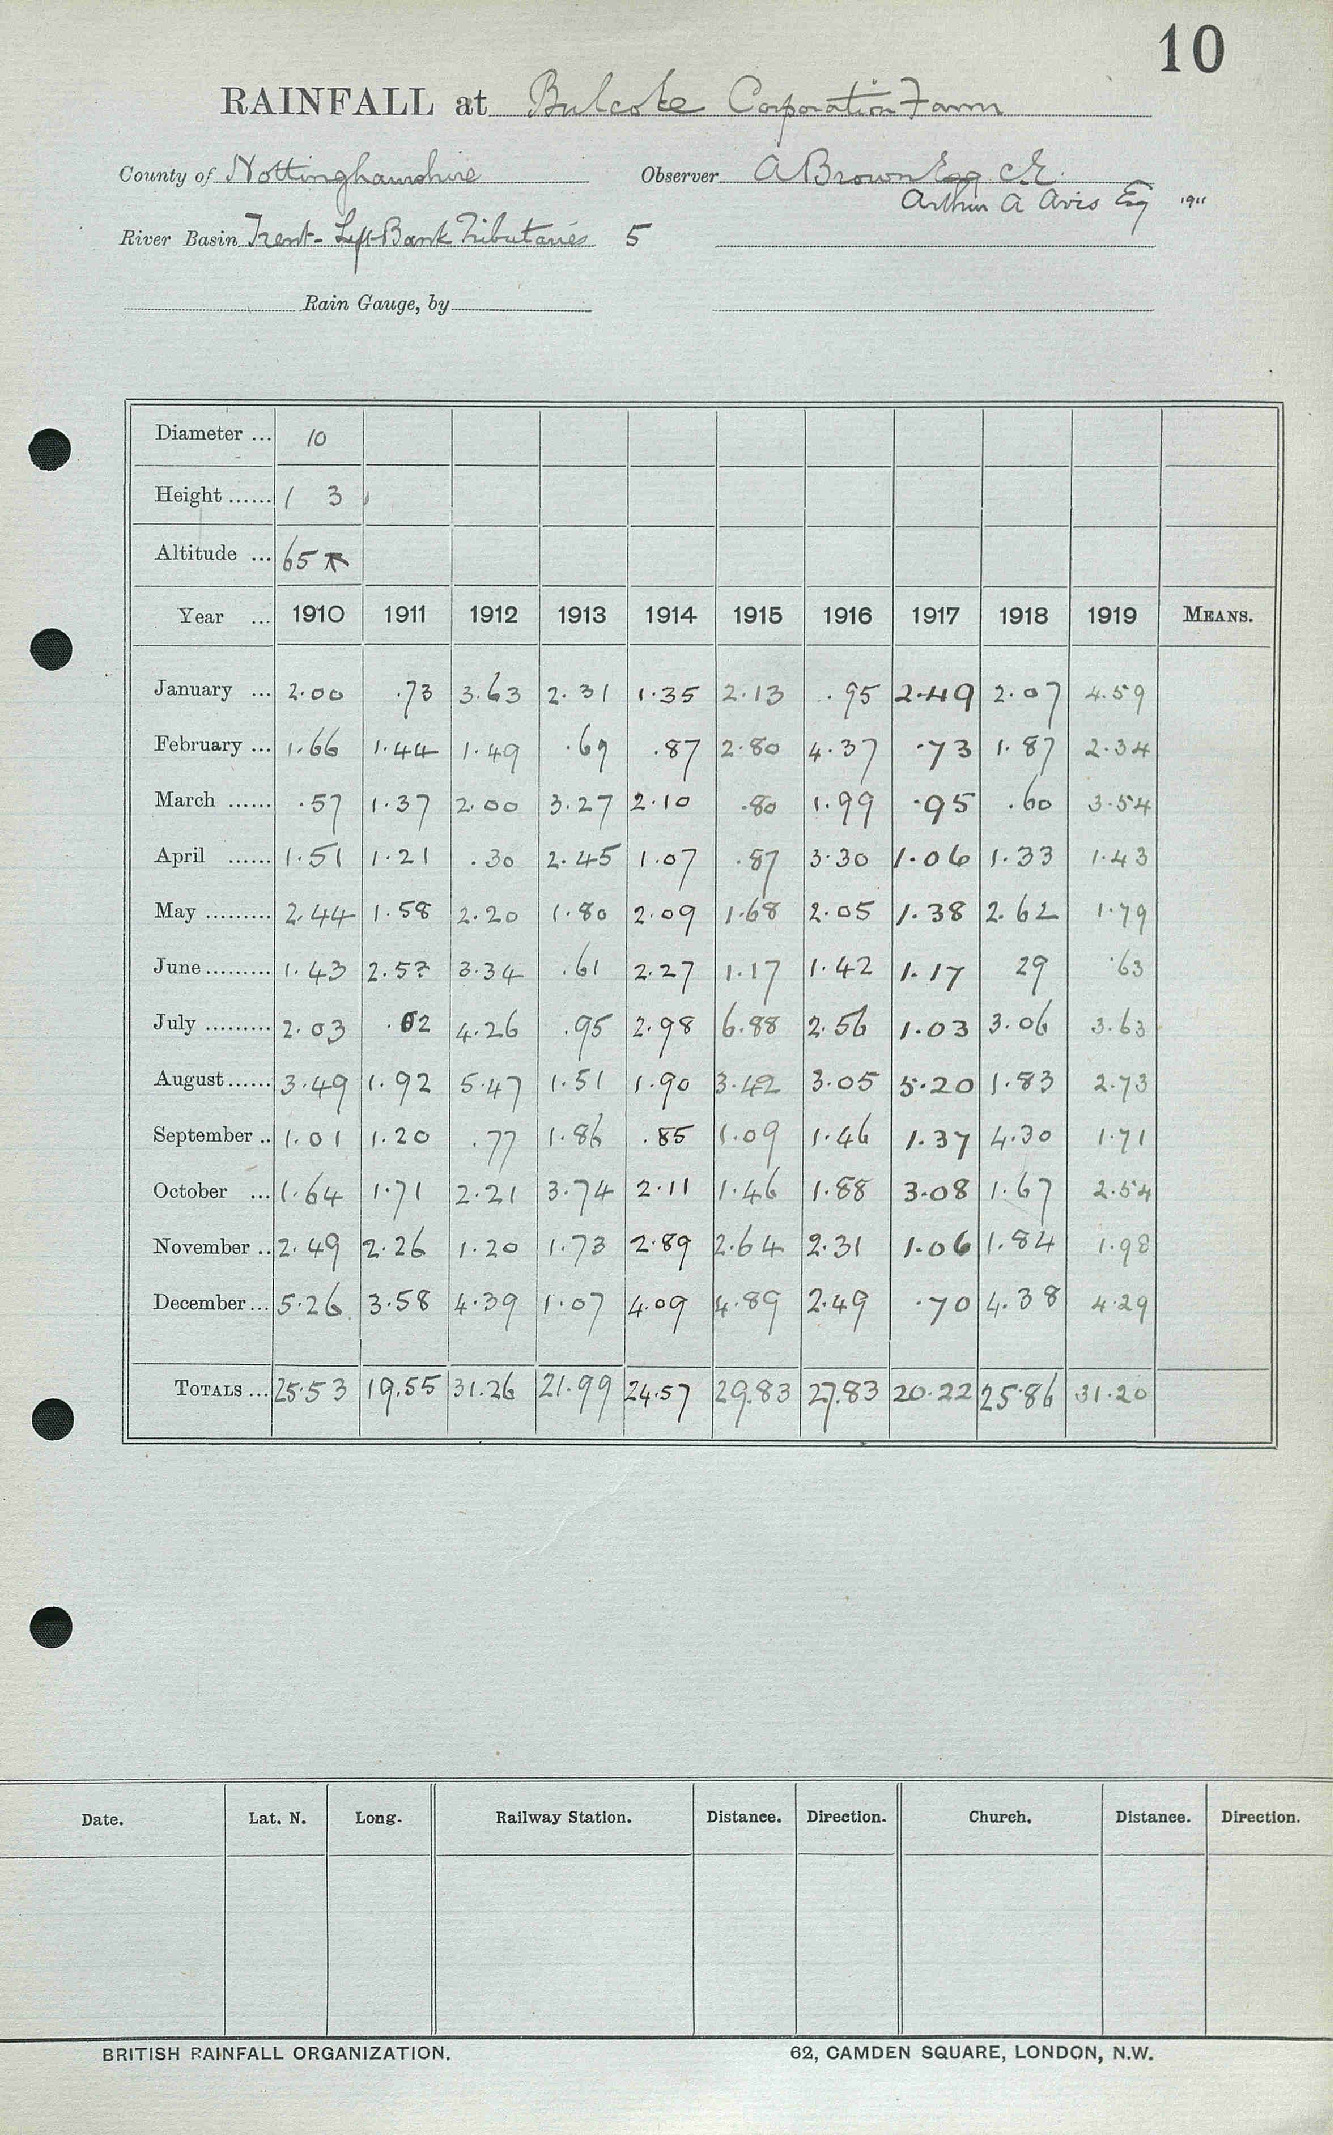 10
RAINFALL at Bulcote Corporation Farm
County of Nottinghamshire Observer A Brown Esq. C.E.
Arthur A Avis Esq 1911
River Basin Trent - Left Bank Tributaries 5
Rain Gauge, by
Diameter ... 10
Height ...... 1 3
Altitude ... 65
Year ... 1910 1911 1912 1913 1914 1915 1916 1917 1918 1919 MEANS.
January ... 2.00 .73 3.63 2.31 1.35 2.13 .95 2.49 2.07 4.59
February ... 1.66 1.44 1.49 .69 .87 2.80 4.37 .73 1.87 2.34
March ...... .57 1.37 2.00 3.27 2.10 .80 1.99 .95 .60 3.54
April ...... 1.51 1.21 .30 2.45 1.07 .87 3.30 1.06 1.33 1.43
May ......... 2.44 1.58 2.20 1.80 2.09 1.68 2.05 1.38 2.62 1.79
June ......... 1.43 2.53 3.34 .61 2.27 1.17 1.42 1.17 29 .63
July ......... 2.03 .02 4.26 .95 2.98 6.88 2.56 1.03 3.06 3.63
August ...... 3.49 1.92 5.47 1.51 1.90 3.42 3.05 5.20 1.83 2.73
September .. 1.01 1.20 .77 1.86 .85 1.09 1.46 1.37 4.30 1.71
October ... 1.64 1.71 2.21 3.74 2.11 1.46 1.88 3.08 1.67 2.54
November .. 2.49 2.26 1.20 1.73 2.89 2.64 2.31 1.06 1.84 1.98
December ... 5.26 3.58 4.39 1.07 4.09 4.89 2.49 .70 4.38 4.29
TOTALS ... 25.53 19.55 31.26 21.99 24.57 29.83 27.83 20.22 25.86 31.20
Date. Lat. N. Long. Railway Station. Distance. Direction. Church. Distance. Direction.
BRITISH RAINFALL ORGANIZATION. 62, CAMDEN SQUARE, LONDON, N.W.